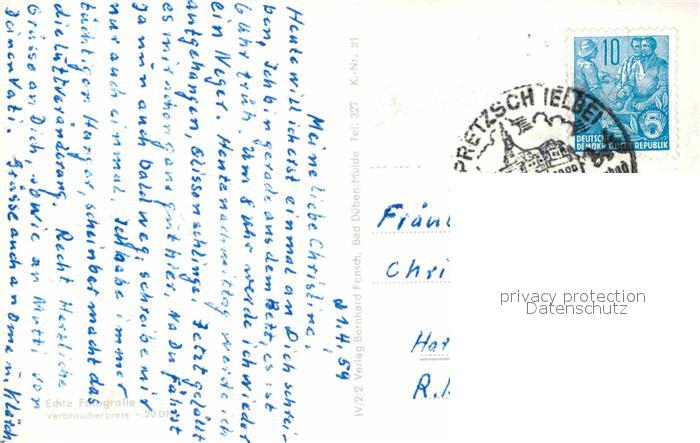 d 1.4.59
Meine liebe Christine,
Heute will ich erst einmal an Dich schrei-
ben, Ich bin gerade aus dem Bett, es ist
6 Uhr früh. Um 8 Uhr werde ich wieder
ein Neger. Heute nachmittag werde ich
aufgehangen, Glissonschlinge. Jetzt gefällt
es mir schon ganz gut hier. Na Du fährst
Ja nun auch bald weg, schreibe mir
nur auch einmal. Ich habe immer
tüchtigen Hunger, scheinbar macht das
die Luftveränderung. Recht Herzliche
Grüsse an Dich, sowie an Mutti von
Deinen Vati. Grüsse auch an Oma u.
Echte Fotografie
Verbraucherpreis -.20 DM
IV/2/2 Verlag Bernhard Fensch, Bad Düben, Mulde Tel. 327 K.-Nr. 21
PRETZSCH (ELBE)
10
5
DEUTSCHE
DEMOKRATISCHE REPUBLIK
Fräul
Chri
Har
R.
privacy protection
Datenschutz